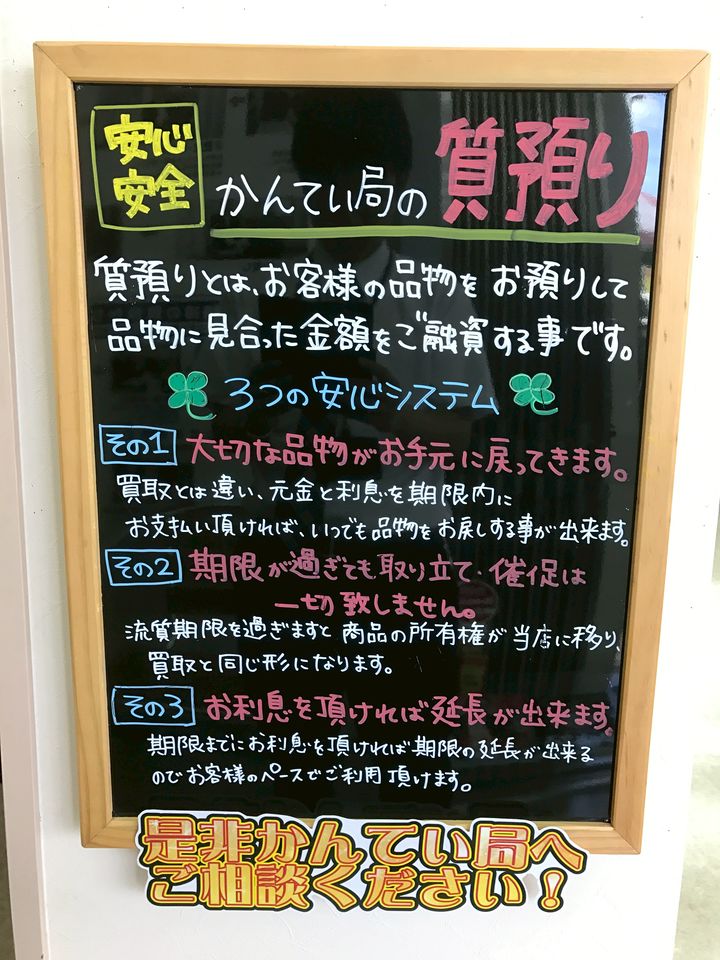 安心
安全
かんてい局の質預り
質預りとは、お客様の品物をお預りして
品物に見合った金額をご融資する事です。
3つの安心システム
その1 大切な品物がお手元に戻ってきます。
買取とは違い、元金と利息を期限内に
お支払い頂ければ、いつでも品物をお戻しする事が出来ます。
その2 期限が過ぎても取り立て・催促は
一切致しません。
流質期限を過ぎますと商品の所有権が当店に移り、
買取と同じ形になります。
その3 お利息を頂ければ延長が出来ます。
期限までにお利息を頂ければ期限の延長が出来る
のでお客様のペースでご利用頂けます。
是非かんてい局へ
ご相談ください!